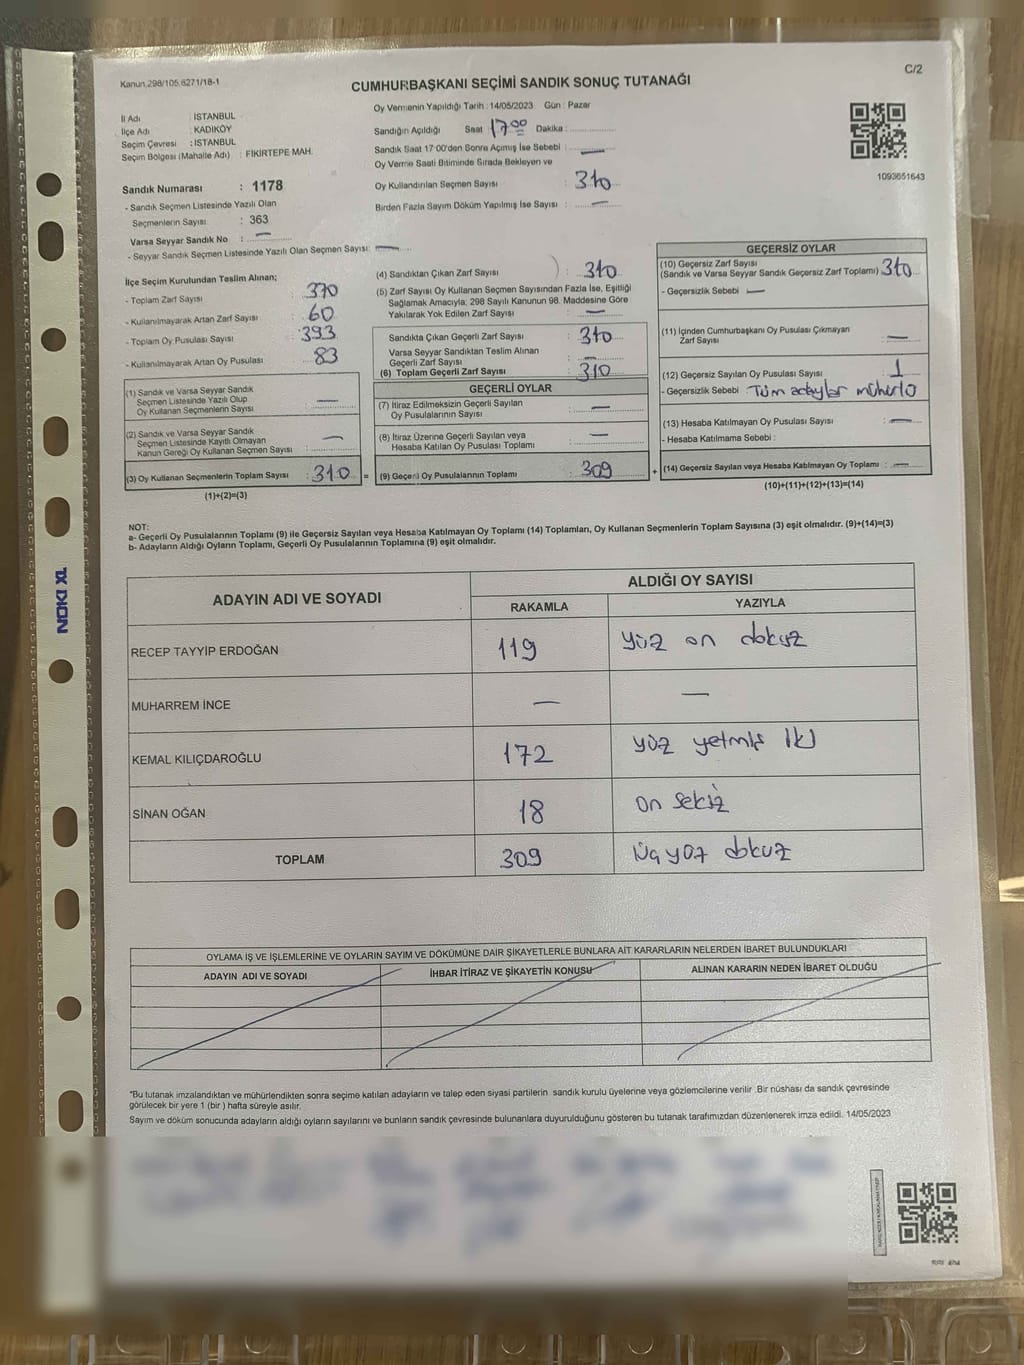 Kanun 298/105,6271/18-1
C/2
CUMHURBAŞKANI SEÇİMİ SANDIK SONUÇ TUTANAĞI
Oy Vermenin Yapıldığı Tarih : 14/05/2023 Gün : Pazar
İl Adı : İSTANBUL
İlçe Adı : KADIKÖY
Seçim Çevresi : İSTANBUL
Seçim Bölgesi (Mahalle Adı) : FİKİRTEPE MAH.
Sandığın Açıldığı Saat 17 00 Dakika :
Sandık Saat 17:00'den Sonra Açmış İse Sebebi : —
Oy Verme Saati Bitiminde Sırada Bekleyen ve
Oy Kullandırılan Seçmen Sayısı : 310
Birden Fazla Sayım Döküm Yapılmış İse Sayısı : —
1093651643
Sandık Numarası : 1178
- Sandık Seçmen Listesinde Yazılı Olan
Seçmenlerin Sayısı : 363
Varsa Seyyar Sandık No : —
- Seyyar Sandık Seçmen Listesinde Yazılı Olan Seçmen Sayısı: —
İlçe Seçim Kurulundan Teslim Alınan;
- Toplam Zarf Sayısı : 370
- Kullanılmayarak Artan Zarf Sayısı : 60
- Toplam Oy Pusulası Sayısı : 393
- Kullanılmayarak Artan Oy Pusulası : 83
(1) Sandık ve Varsa Seyyar Sandık
Seçmen Listesinde Yazılı Olup
Oy Kullanan Seçmenlerin Sayısı : —
(2) Sandık ve Varsa Seyyar Sandık
Seçmen Listesinde Kayıtlı Olmayan
Kanun Gereği Oy Kullanan Seçmen Sayısı : —
(3) Oy Kullanan Seçmenlerin Toplam Sayısı : 310 =
(1)+(2)=(3)
(4) Sandıktan Çıkan Zarf Sayısı : 310
(5) Zarf Sayısı Oy Kullanan Seçmen Sayısından Fazla İse, Eşitliği
Sağlamak Amacıyla; 298 Sayılı Kanunun 98. Maddesine Göre
Yakılarak Yok Edilen Zarf Sayısı : —
Sandıkta Çıkan Geçerli Zarf Sayısı : 310
Varsa Seyyar Sandıktan Teslim Alınan
Geçerli Zarf Sayısı : —
(6) Toplam Geçerli Zarf Sayısı : 310
GEÇERLİ OYLAR
(7) İtiraz Edilmeksizin Geçerli Sayılan
Oy Pusulalarının Sayısı : —
(8) İtiraz Üzerine Geçerli Sayılan veya
Hesaba Katılan Oy Pusulası Toplamı : —
(9) Geçerli Oy Pusulalarının Toplamı : 309 +
GEÇERSİZ OYLAR
(10) Geçersiz Zarf Sayısı
(Sandık ve Varsa Seyyar Sandık Geçersiz Zarf Toplamı) 310
- Geçersizlik Sebebi —
(11) İçinden Cumhurbaşkanı Oy Pusulası Çıkmayan
Zarf Sayısı : —
(12) Geçersiz Sayılan Oy Pusulası Sayısı : 1
- Geçersizlik Sebebi : Tüm adaylar mühürlü
(13) Hesaba Katılmayan Oy Pusulası Sayısı : —
- Hesaba Katılmama Sebebi :
(14) Geçersiz Sayılan veya Hesaba Katılmayan Oy Toplamı : —
(10)+(11)+(12)+(13)=(14)
NOT:
a- Geçerli Oy Pusulalarının Toplamı (9) ile Geçersiz Sayılan veya Hesaba Katılmayan Oy Toplamı (14) Toplamları, Oy Kullanan Seçmenlerin Toplam Sayısına (3) eşit olmalıdır. (9)+(14)=(3)
b- Adayların Aldığı Oyların Toplamı, Geçerli Oy Pusulalarının Toplamına (9) eşit olmalıdır.
ADAYIN ADI VE SOYADI
ALDIĞI OY SAYISI
RAKAMLA YAZIYLA
RECEP TAYYİP ERDOĞAN 119 yüz on dokuz
MUHARREM İNCE — —
KEMAL KILIÇDAROĞLU 172 yüz yetmiş iki
SİNAN OĞAN 18 on sekiz
TOPLAM 309 üçyüz dokuz
NOKI XL
OYLAMA İŞ VE İŞLEMLERİNE VE OYLARIN SAYIM VE DÖKÜMÜNE DAİR ŞİKAYETLERLE BUNLARA AİT KARARLARIN NELERDEN İBARET BULUNDUKLARI
ADAYIN ADI VE SOYADI İHBAR İTİRAZ VE ŞİKAYETİN KONUSU ALINAN KARARIN NEDEN İBARET OLDUĞU
*Bu tutanak imzalandıktan ve mühürlendikten sonra seçime katılan adayların ve talep eden siyasi partilerin sandık kurulu üyelerine veya gözlemcilerine verilir .Bir nüshası da sandık çevresinde
görülecek bir yere 1 (bir ) hafta süreyle asılır.
Sayım ve döküm sonucunda adayların aldığı oyların sayılarını ve bunların sandık çevresinde bulunanlara duyurulduğunu gösteren bu tutanak tarafımızdan düzenlenerek imza edildi. 14/05/2023